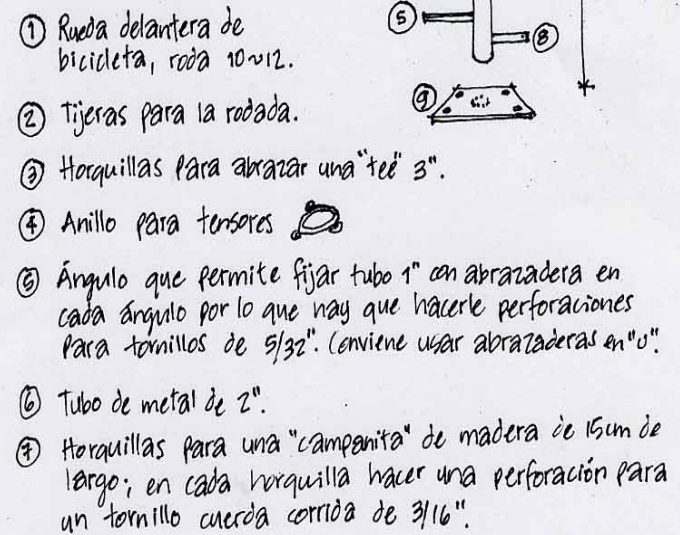 ① Rueda delantera de
bicicleta, roda 10~12.
② Tijeras para la rodada.
③ Horquillas para abrazar una "tee" 3".
④ Anillo para tensores
⑤ Ángulo que permite fijar tubo 1" con abrazadera en
cada ángulo por lo que hay que hacerle perforaciones
para tornillos de 5/32". Conviene usar abrazaderas en "u".
⑥ Tubo de metal de 2".
⑦ Horquillas para una "campanita" de madera de 15cm de
largo; en cada horquilla hacer una perforación para
un tornillo cuerda corrida de 3/16".
⑤
⑧
⑨